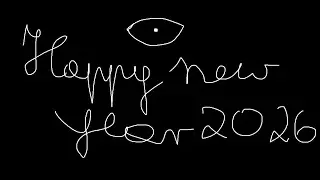 Happy new
year 2026